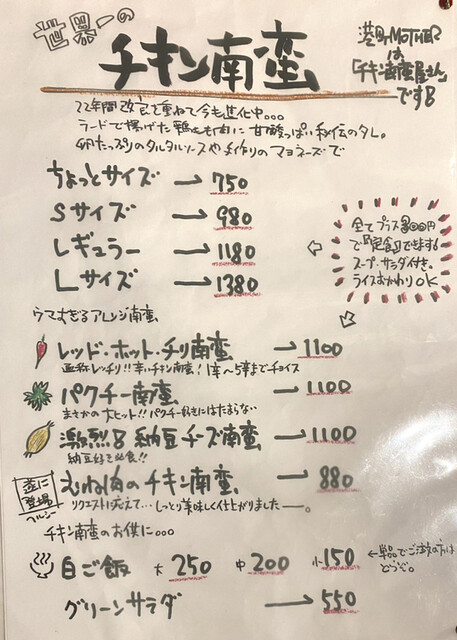 世界一の
チキン南蛮
港町MOTHER
は
「チキン南蛮屋さん」
です!
22年間改良を重ねて今も進化中...
ラードで揚げた鶏もも肉に甘酸っぱい秘伝のタレ。
卵たっぷりのタルタルソースや手作りのマヨネーズで
ちょっとサイズ → 750
Sサイズ → 980
レギュラー → 1180
Lサイズ → 1380
全てプラス300円
で「定食」できます!
スープ・サラダ付き。
ライスおかわりOK
ウマすぎるアレンジ南蛮
レッド・ホット・チリ南蛮 → 1100
通称レッチリ!!辛いチキン南蛮!1辛〜5辛までチョイス
パクチー南蛮 → 1100
まさかの大ヒット!!パクチー好きにはたまらない
激烈!納豆チーズ南蛮 → 1100
納豆好き必食!!
遂に
登場
ヘルシー
むね肉のチキン南蛮 → 880
リクエストに応えて...しっとり美味しく仕上がりました―。
チキン南蛮のお供に...
白ご飯 大250 中200 小150
←単品でご注文の方は
どうぞ。
グリーンサラダ → 550